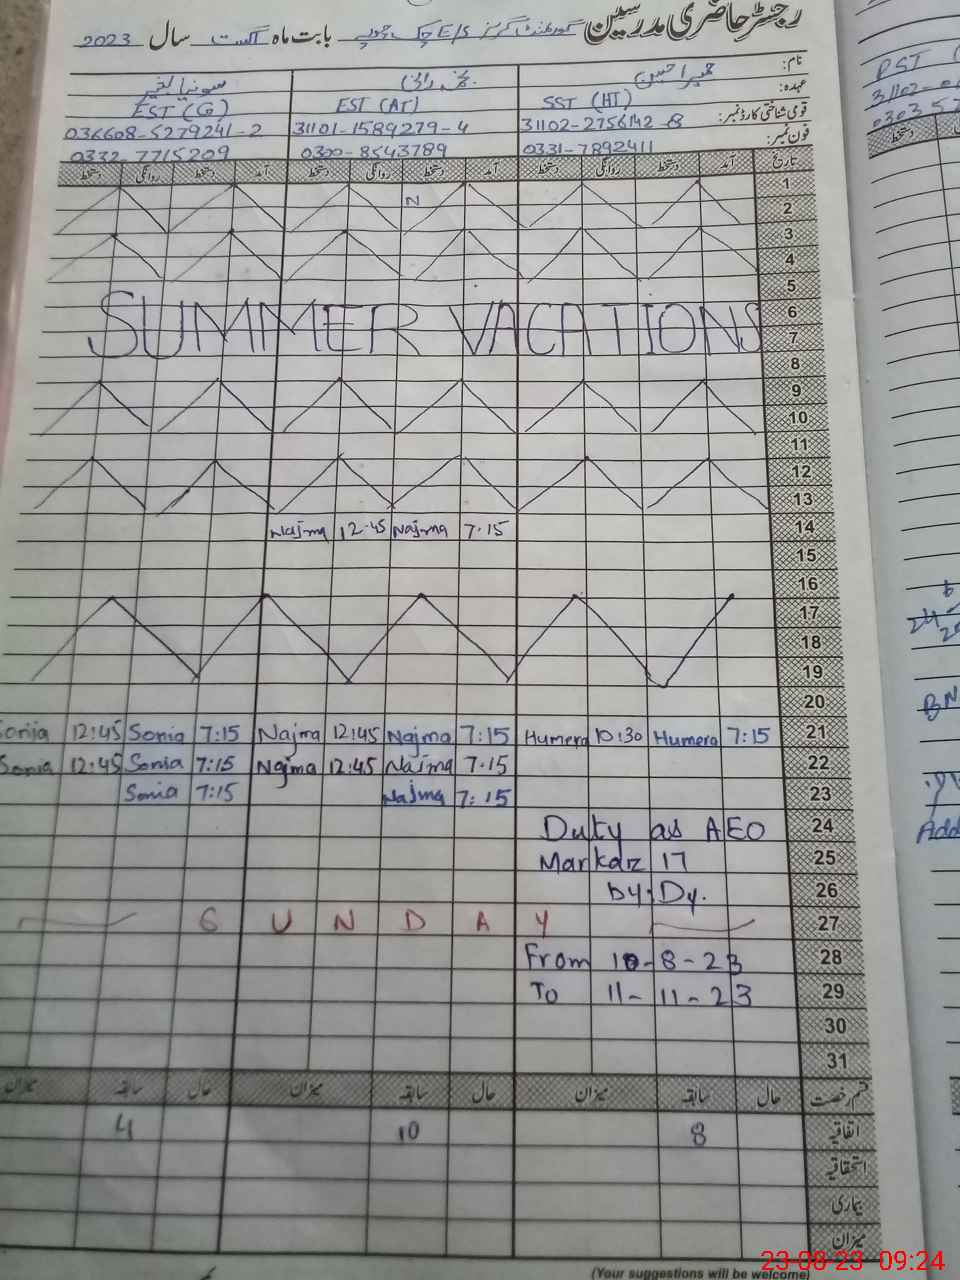 رجسٹر حاضری مدرسین گورنمنٹ گرلز E/S چک بابت ماہ اگست سال 2023
نام: حمیرا حسین نجمہ رانی سونیا
عہدہ: SST (HT) EST (AT) EST (G)
قومی شناختی کارڈ نمبر: 31102-2756142-8 31101-1589279-4 036608-5279241-2
فون نمبر: 0331-7892411 0300-8543789 0332-7715209
تاریخ آمد دستخط روانگی دستخط آمد دستخط روانگی دستخط آمد دستخط روانگی دستخط
1
2 N
3
4
5
6
SUMMER VACATIONS
7
8
9
10
11
12
13
Najma 12.45 Najma 7.15 14
15
16
17
18
19
20
Sonia 12:45 Sonia 7:15 Najma 12:45 Najma 7:15 Humera 10:30 Humera 7:15 21
Sonia 12:45 Sonia 7:15 Najma 12:45 Najma 7.15 22
Sonia 7:15 Najma 7:15 23
Duty as AEO 24
Markaz 17 25
by Dy. 26
S U N D A Y 27
From 10-8-23 28
To 11-11-23 29
30
31
قسم رخصت حال سابقہ میزان حال سابقہ میزان حال سابقہ میزان
اتفاقیہ 8 10 4
استحقاقیہ
بیماری
میزان
(Your suggestions will be welcome)
23-08-23 09:24
PST
31102-0
0303 57
دستخط
BN
Add